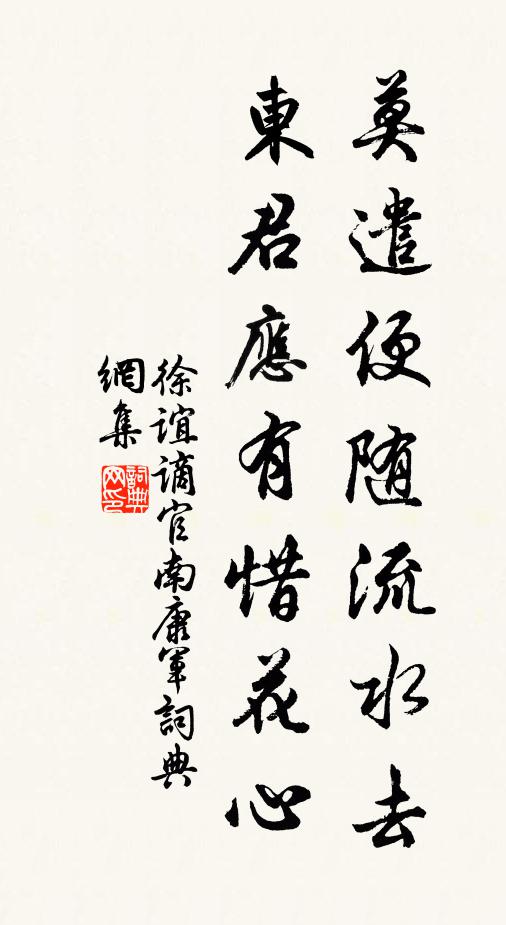 莫遣便随流水去
東君應有惜花心
徐誼謫官南康軍詞典
網集
詞典
网印